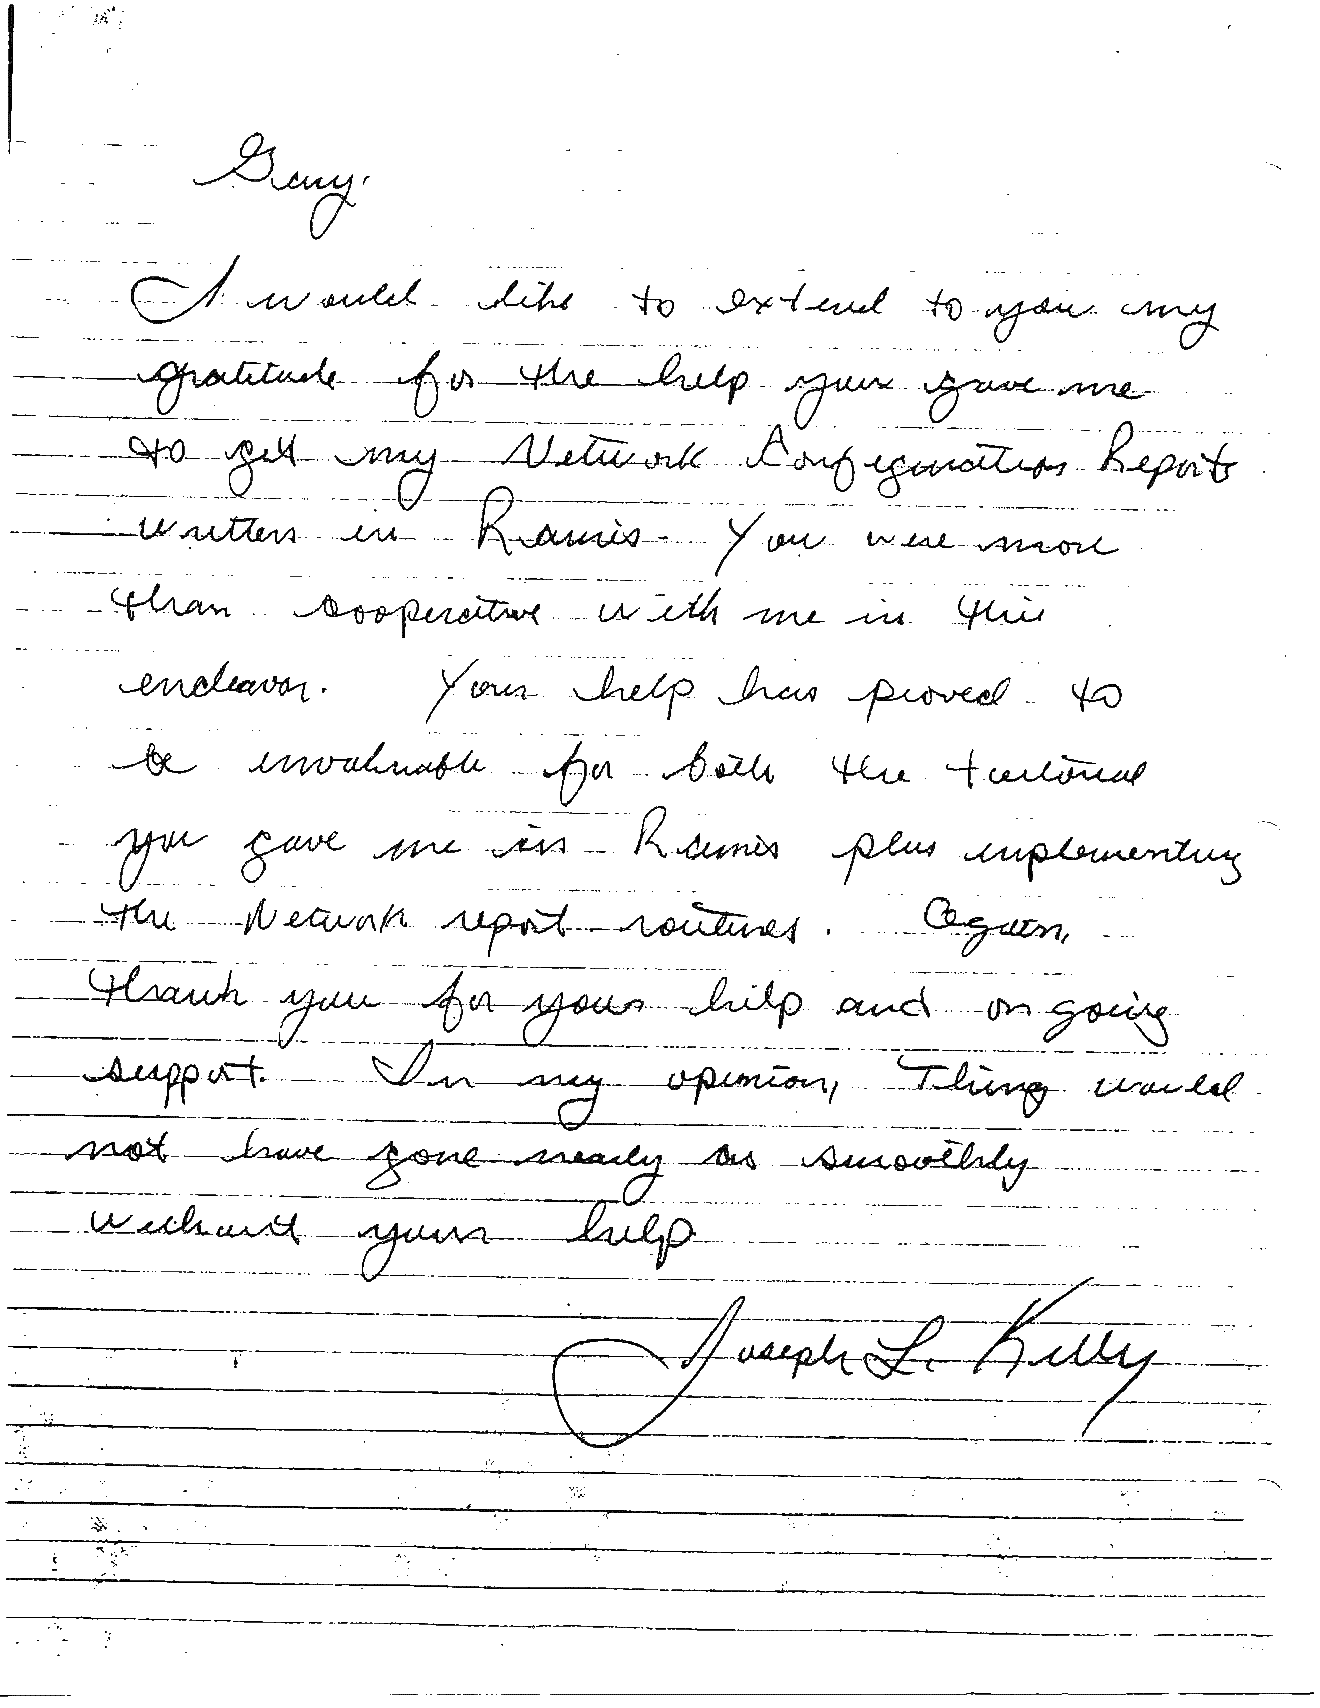 Gary.
I would like to extend to you my
gratitude for the help you gave me
to get my Network Configuration Reports
written in Ramis. You were more
than cooperative with me in this
endeavor. Your help has proved to
be invaluable for both the tutorial
you gave me in Ramis plus implementing
the Network report routines. Again,
thank you for your help and on going
support. In my opinion, Things would
not have gone nearly as smoothly
without your help
Joseph L. Kelly